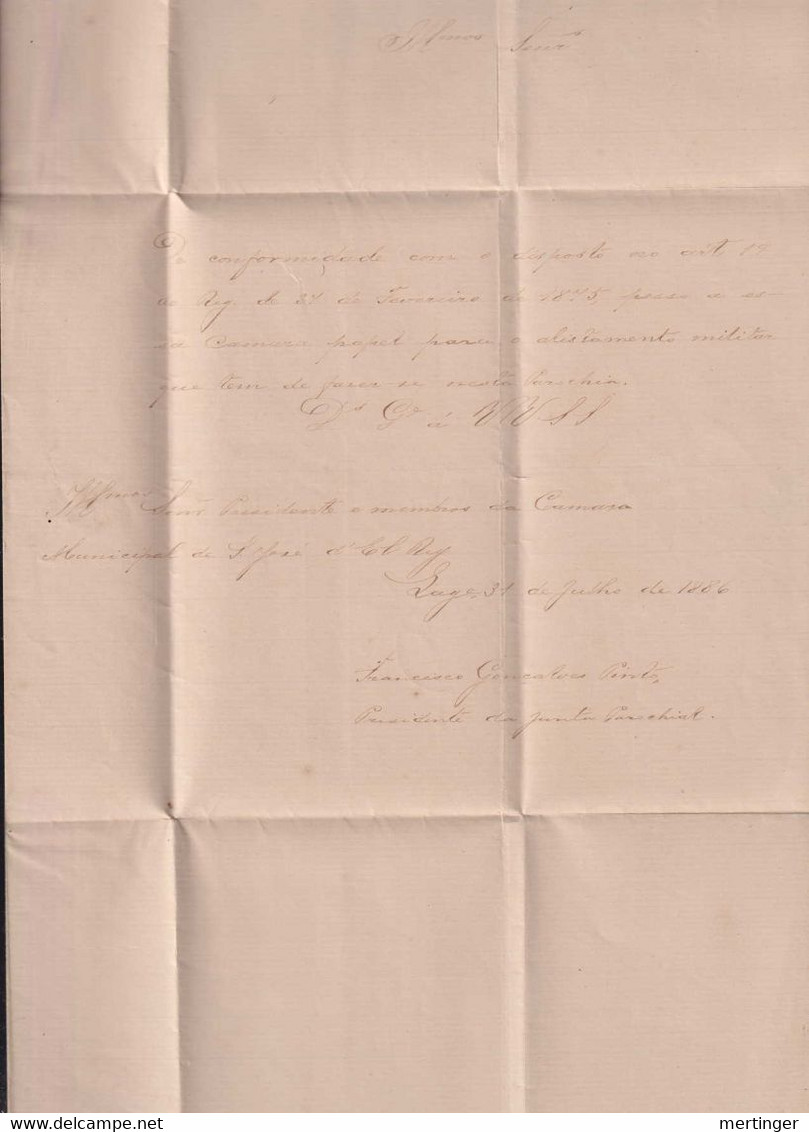 Illmos Senrs
De conformidade com o disposto no art. 19
do Reg. de 27 de Fevereiro de 1875, peço a es-
sa Camara papel para o alistamento militar
que tem de fazer-se nesta Parochia.
Ds Ge á VV SS
Illmos Senrs Presidente e membros da Camara
Municipal de S. José d'El Rey
Lage, 31 de Julho de 1886
Francisco Gonçalves Pinto,
Presidente da Junta Parochial.
mertinger